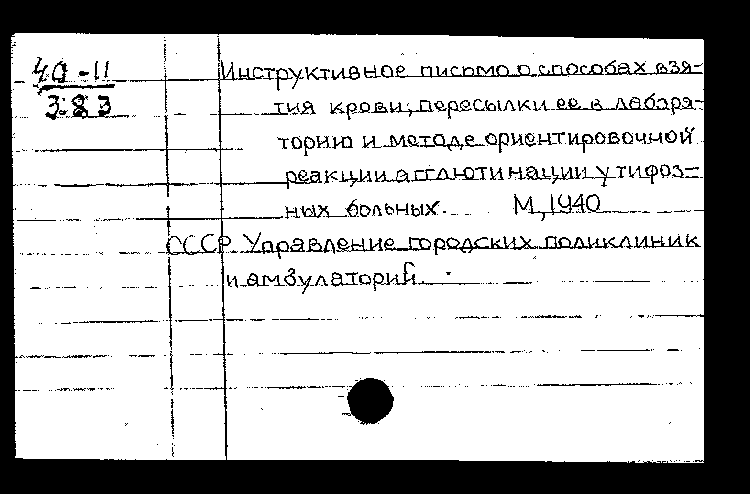 40-11
383
Инструктивное письмо о способах взя-
тия крови, пересылки ее в лабора-
торию и методе ориентировочной
реакции агглютинации у тифоз-
ных больных. М, 1940
СССР Управление городских поликлиник
и амбулаторий.